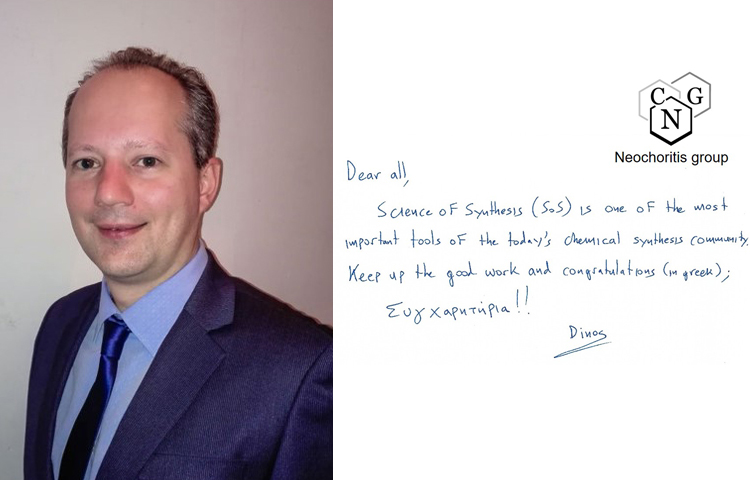 C G
N
Neochoritis group
Dear all,
Science of Synthesis (SoS) is one of the most
important tools of the today's chemical synthesis community.
Keep up the good work and congratulations (in greek);
Συγχαρητήρια!!
Dinos